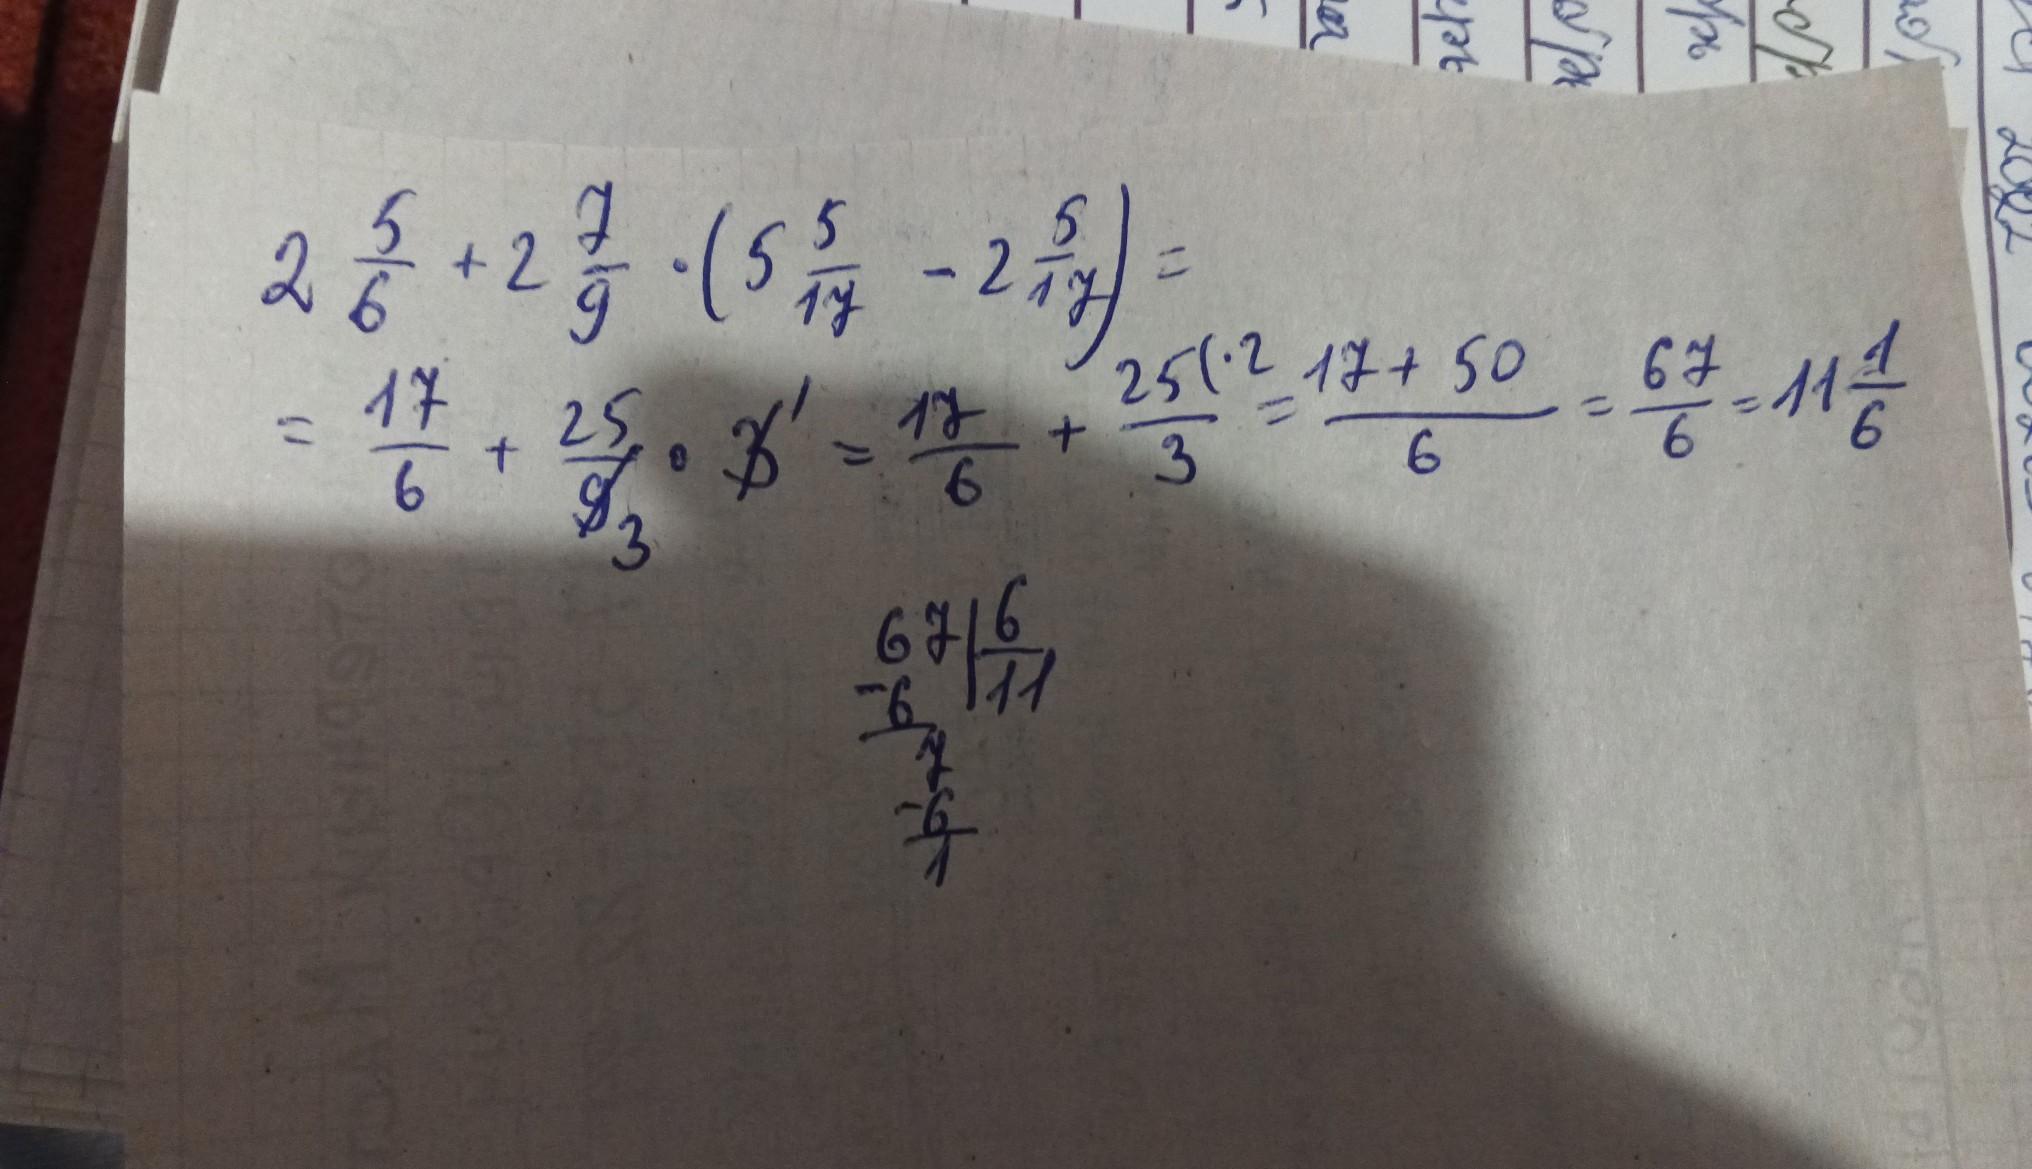 2 5/6 + 2 7/9 · (5 5/17 - 2 5/17) =
= 17/6 + 25/9 3 · 3 1 = 17/6 + 25(·2/3 = 17+50/6 = 67/6 = 11 1/6
67|6
-6 11
7
-6
1
2022